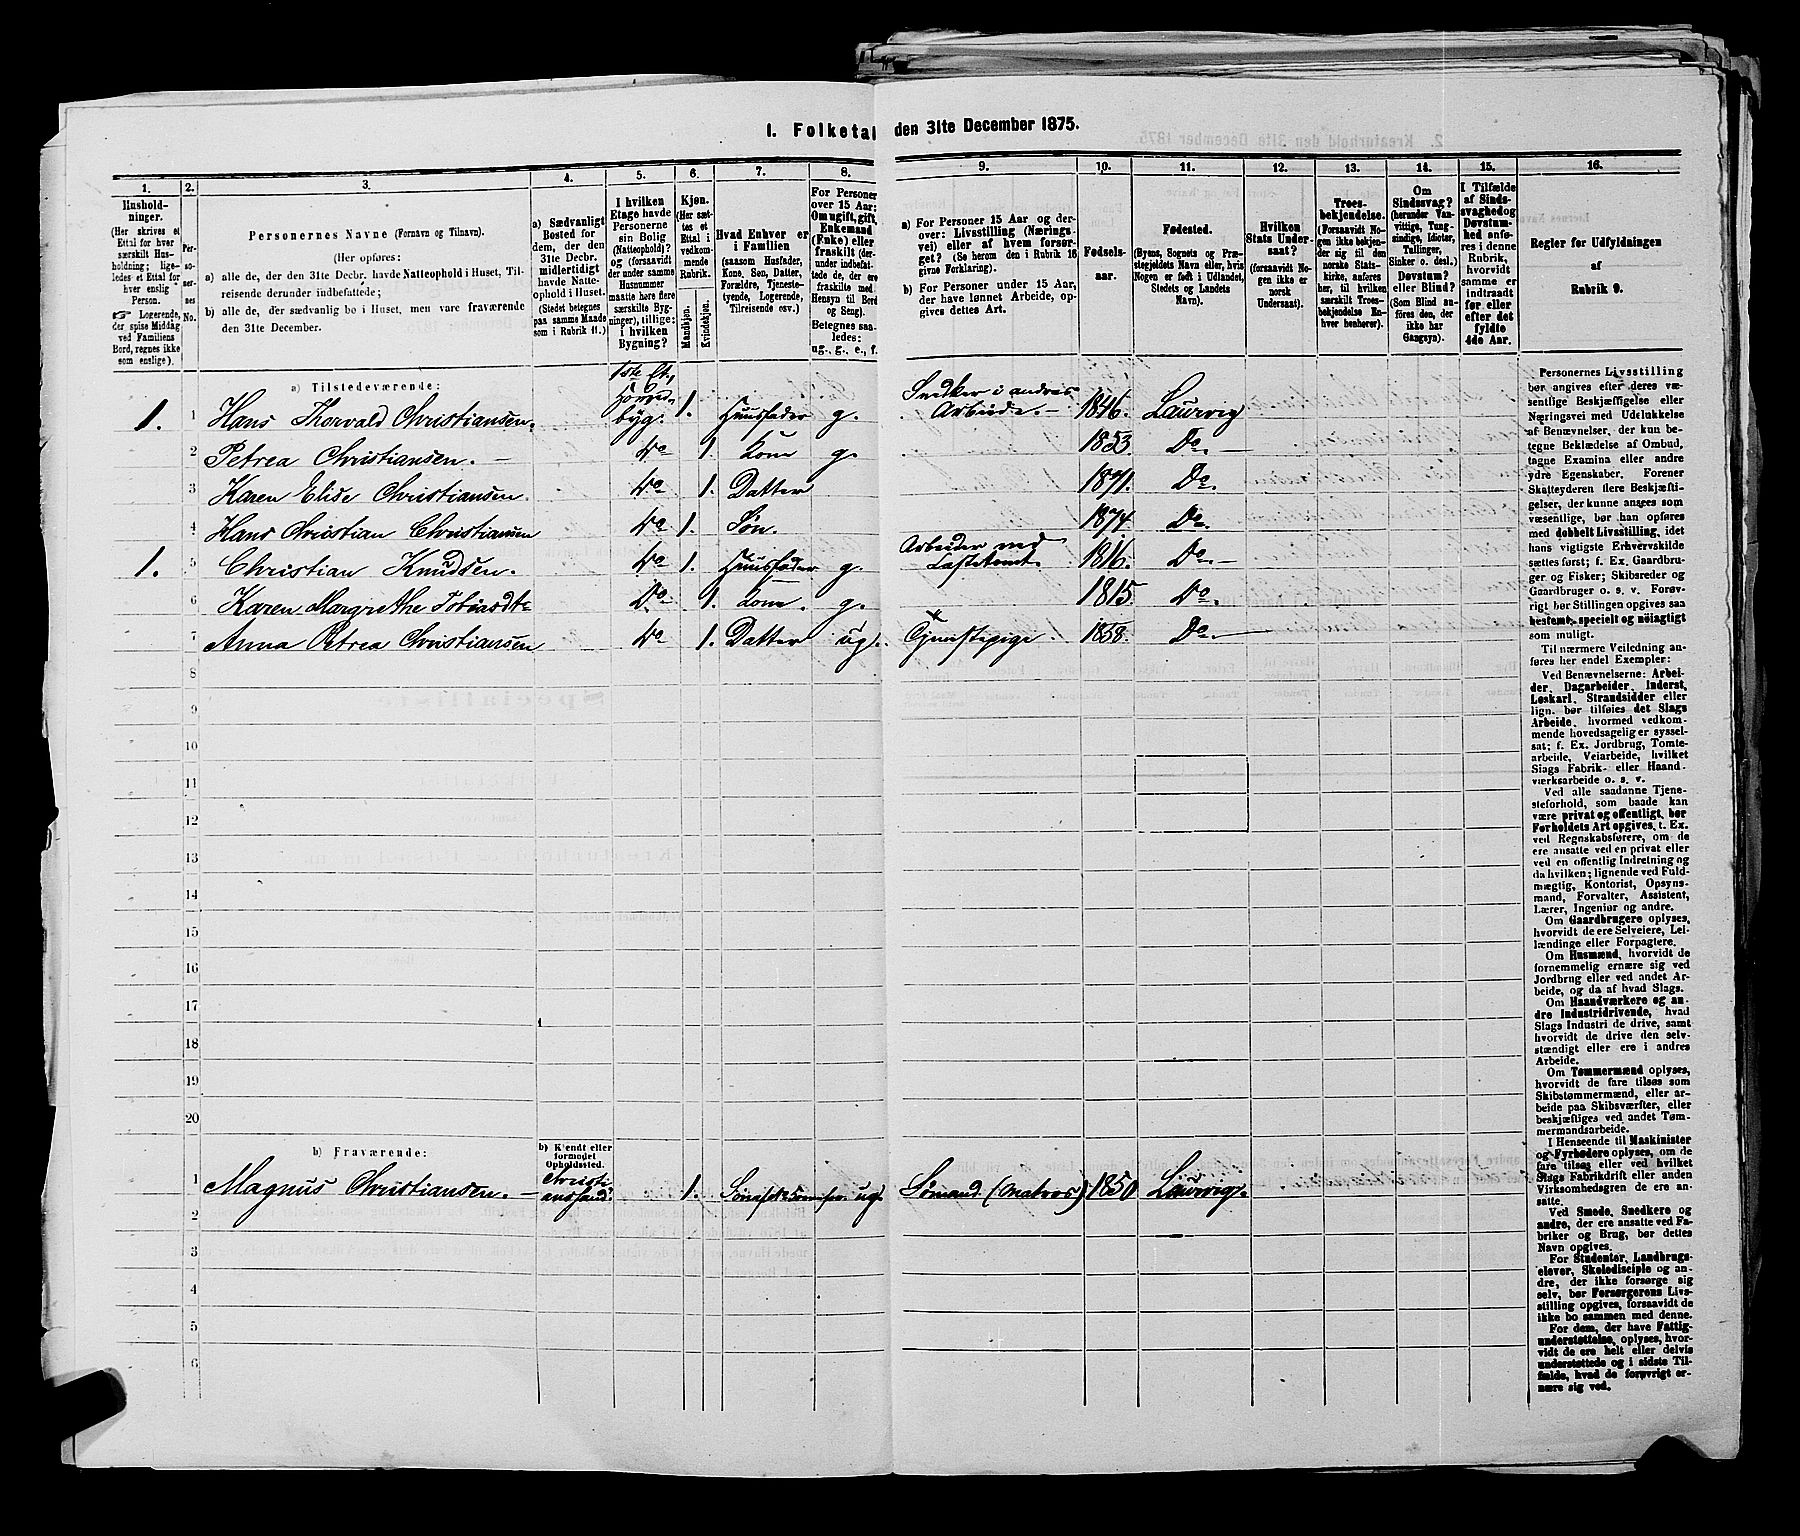 1. Folketal den 31te December 1875.
1. 2. 3. 4. 5. 6. 7. 8. 9. 10. 11. 12. 13. 14. 15. 16.
Husholdninger.
(Her skrives et
Ettal for hver
særskilt Husholdning;
ligeledes et Ettal for
hver enslig
Person.
☞ Logerende,
der spise Middag
ved Familiens
Bord, regnes ikke
som enslige).
Personernes No.
Personernes Navne (Fornavn og Tilnavn).
(Her opføres:
a) alle de, der den 31te Decbr. havde Natteophold i Huset, Tilreisende
derunder indbefattede;
b) alle de, der sædvanlig bo i Huset, men vare fraværende
den 31te December.
a) Sædvanligt
Bosted for
dem, der den
31te Decbr.
midlertidigt
havde Natteophold
i Huset.
(Stedet betegnes
paa samme Maade
som i Rubrik 11.)
I hvilken
Etage havde
Personerne
sin Bolig
(Natteophold)?
og (forsaavidt
der under samme
Husnummer
maatte høre flere
særskilte Bygninger),
tillige:
i hvilken
Bygning?
Kjøn.
(Her sættes
et
Ettal i
vedkommende
Rubrik.
Mandkjøn.
Kvindekjøn.
Hvad Enhver er
i Familien
(saasom Husfader,
Kone, Søn, Datter,
Forældre, Tjenestetyende,
Logerende,
Tilreisende osv.)
For Personer
over 15 Aar:
Om ugift, gift,
Enkemand
(Enke) eller
fraskilt (derunder
indbefattede
de, der ere
fraskilte med
Hensyn til Bord
og Seng).
Betegnes saaledes:
ug., g., e., f.
a) For Personer 15 Aar og derover:
Livsstilling (Næringsvei)
eller af hvem forsørget?
(Se herom den i Rubrik 16
givne Forklaring).
b) For Personer under 15 Aar,
der have lønnet Arbeide, opgives
dettes Art.
Fødselsaar.
Fødested.
(Byens, Sognets og Præstegjeldets
Navn eller, hvis
Nogen er født i Udlandet,
Stedets og Landets
Navn).
Hvilken
Stats Undersaat?
(forsaavidt Nogen
ikke er
norsk
Undersaat).
Troesbekjendelse.
(Forsaavidt Nogen
ikke bekjender
sig til den
norske Statskirke,
anføres
her, til hvilken
særskilt Troesbekjendelse
Enhver
henhører).
Om
Sindssvag?
(herunder Vanvittige,
Tungsindige,
Idioter,
Tullinger,
Sinker o. desl.)
Døvstum?
eller Blind?
(Som Blind anføres
den, der
ikke har
Gangsyn).
I Tilfælde
af Sindssvaghed
og
Døvstumhed
anføres
i denne
Rubrik,
hvorvidt
samme er
indtraadt
før eller
efter det
fyldte
4de Aar.
Regler for Udfyldningen
af
Rubrik 9.
a) Tilstedeværende:
1. 1 Hans Thorvald Christiansen. 1ste Et., byg. 1. Huusfader g. Snedker i andres Arbeide. – 1846. Laurvig
2 Petrea Christiansen. – Do 1. Kone g. 1853 Do. –
3 Karen Elise Christiansen. Do 1. Datter 1871. Do.
4 Hans Christian Christiansen Do 1. Søn. 1874. Do.
1. 5 Christian Knudsen. Do 1. Huusfader g. Arbeider ved 1816. Do. –
6 Karen Margrethe Do. 1. Kone. g. 1815. Do.
7 Anna Petrea Christiansen Do 1. Datter ug. Tjenestepige. 1858. Do. –
8
9
10
11
12
13
14
15
16
17
18
19
20
b) Fraværende:
b) Kjendt eller
formodet
Opholdssted.
1 Magnus Christiansen. – Christiansand 1. ug. Sømand (Matros) 1850 Laurvig.
2
3
4
5
6
Personernes Livsstilling
bør angives efter deres væsentlige
Beskjæftigelse eller
Næringsvei med Udelukkelse
af Benævnelser, der kun betegne
Beklædelse af Ombud,
tagne Examina eller andre
ydre Egenskaber. Forener
Skatteyderen flere Beskjæftigelser,
der kunne anges som
væsentlige, bør han opføres
med dobbelt Livsstilling, idet
hans vigtigste Erhvervskilde
sættes først; f. Ex. Gaardbruger
og Fisker; Skibsreder og
Gaardbruger o. s. v. Forøvrigt
bør Stillingen opgives saa
bestemt, specielt og nöiagtigt
som muligt.
Til nærmere Veiledning anføres
her endel Exempler:
Ved Benævnelserne: Arbeider,
Dagarbeider, Inderst,
Løskarl, Strandsidder eller
lign. bør tilføies det Slags
Arbeide, hvormed vedkommende
hovedsagelig er sysselsat;
f. Ex. Jordbrug, Tomtearbeide,
Veiarbeide, hvilket
Slags Fabrik- eller Haandværksarbeide
o. s. v.
Ved alle saadanne Tjenesteforhold,
som baade kan
være privat og offentligt, bør
Forholdets Art opgives, t. Ex.
ved Regnskabsførere, om de
ere ansatte ved en privat eller
ved en offentlig Indretning og
da hvilken; lignende ved Fuldmægtig,
Kontorist, Opsynsmand,
Forvalter, Assistent,
Lærer, Ingeniør og andre.
Om Gaardbrugere oplyses,
hvorvidt de ere Selveiere, Leilændinge
eller Forpagtere.
Om Husmænd, hvorvidt de
fornemmelig ernære sig ved
Jordbrug eller ved andet Arbeide,
og da af hvad Slags.
Om Haandværkere og andre
Industridrivende, hvad
Slags Industri de drive, samt
hvorvidt de drive den selvstændigt
eller ere i andres
Arbeide.
Om Tømmermænd oplyses,
hvorvidt de fare tilsøs som
Skibstømmermænd, eller arbeide
paa Skibsværfter, eller
beskjæftiges ved andet Tømmermandsarbeide.
I Henseende til Maskinister
og Fyrbødere oplyses, om de
fare tilsøs eller ved hvilket
Slags Fabrikdrift eller anden
Virksomhedsgren de ere ansatte.
Ved Smede, Snedkere og
andre, der ere ansatte ved Fabriker
og Brug, bør dettes
Navn opgives.
For Studenter, Landbrugselever,
Skoledisciple og andre,
der ikke forsørge sig
selv, bør Forsørgerens Livsstilling
opgives, forsaavidt de
ikke bo sammen med denne.
For dem, der have Fattigunderstøttelse,
oplyses, hvorvidt
de ere helt eller delvis
understøttede og i sidste Tilfælde,
hvad de forøvrigt ernære
sig ved.